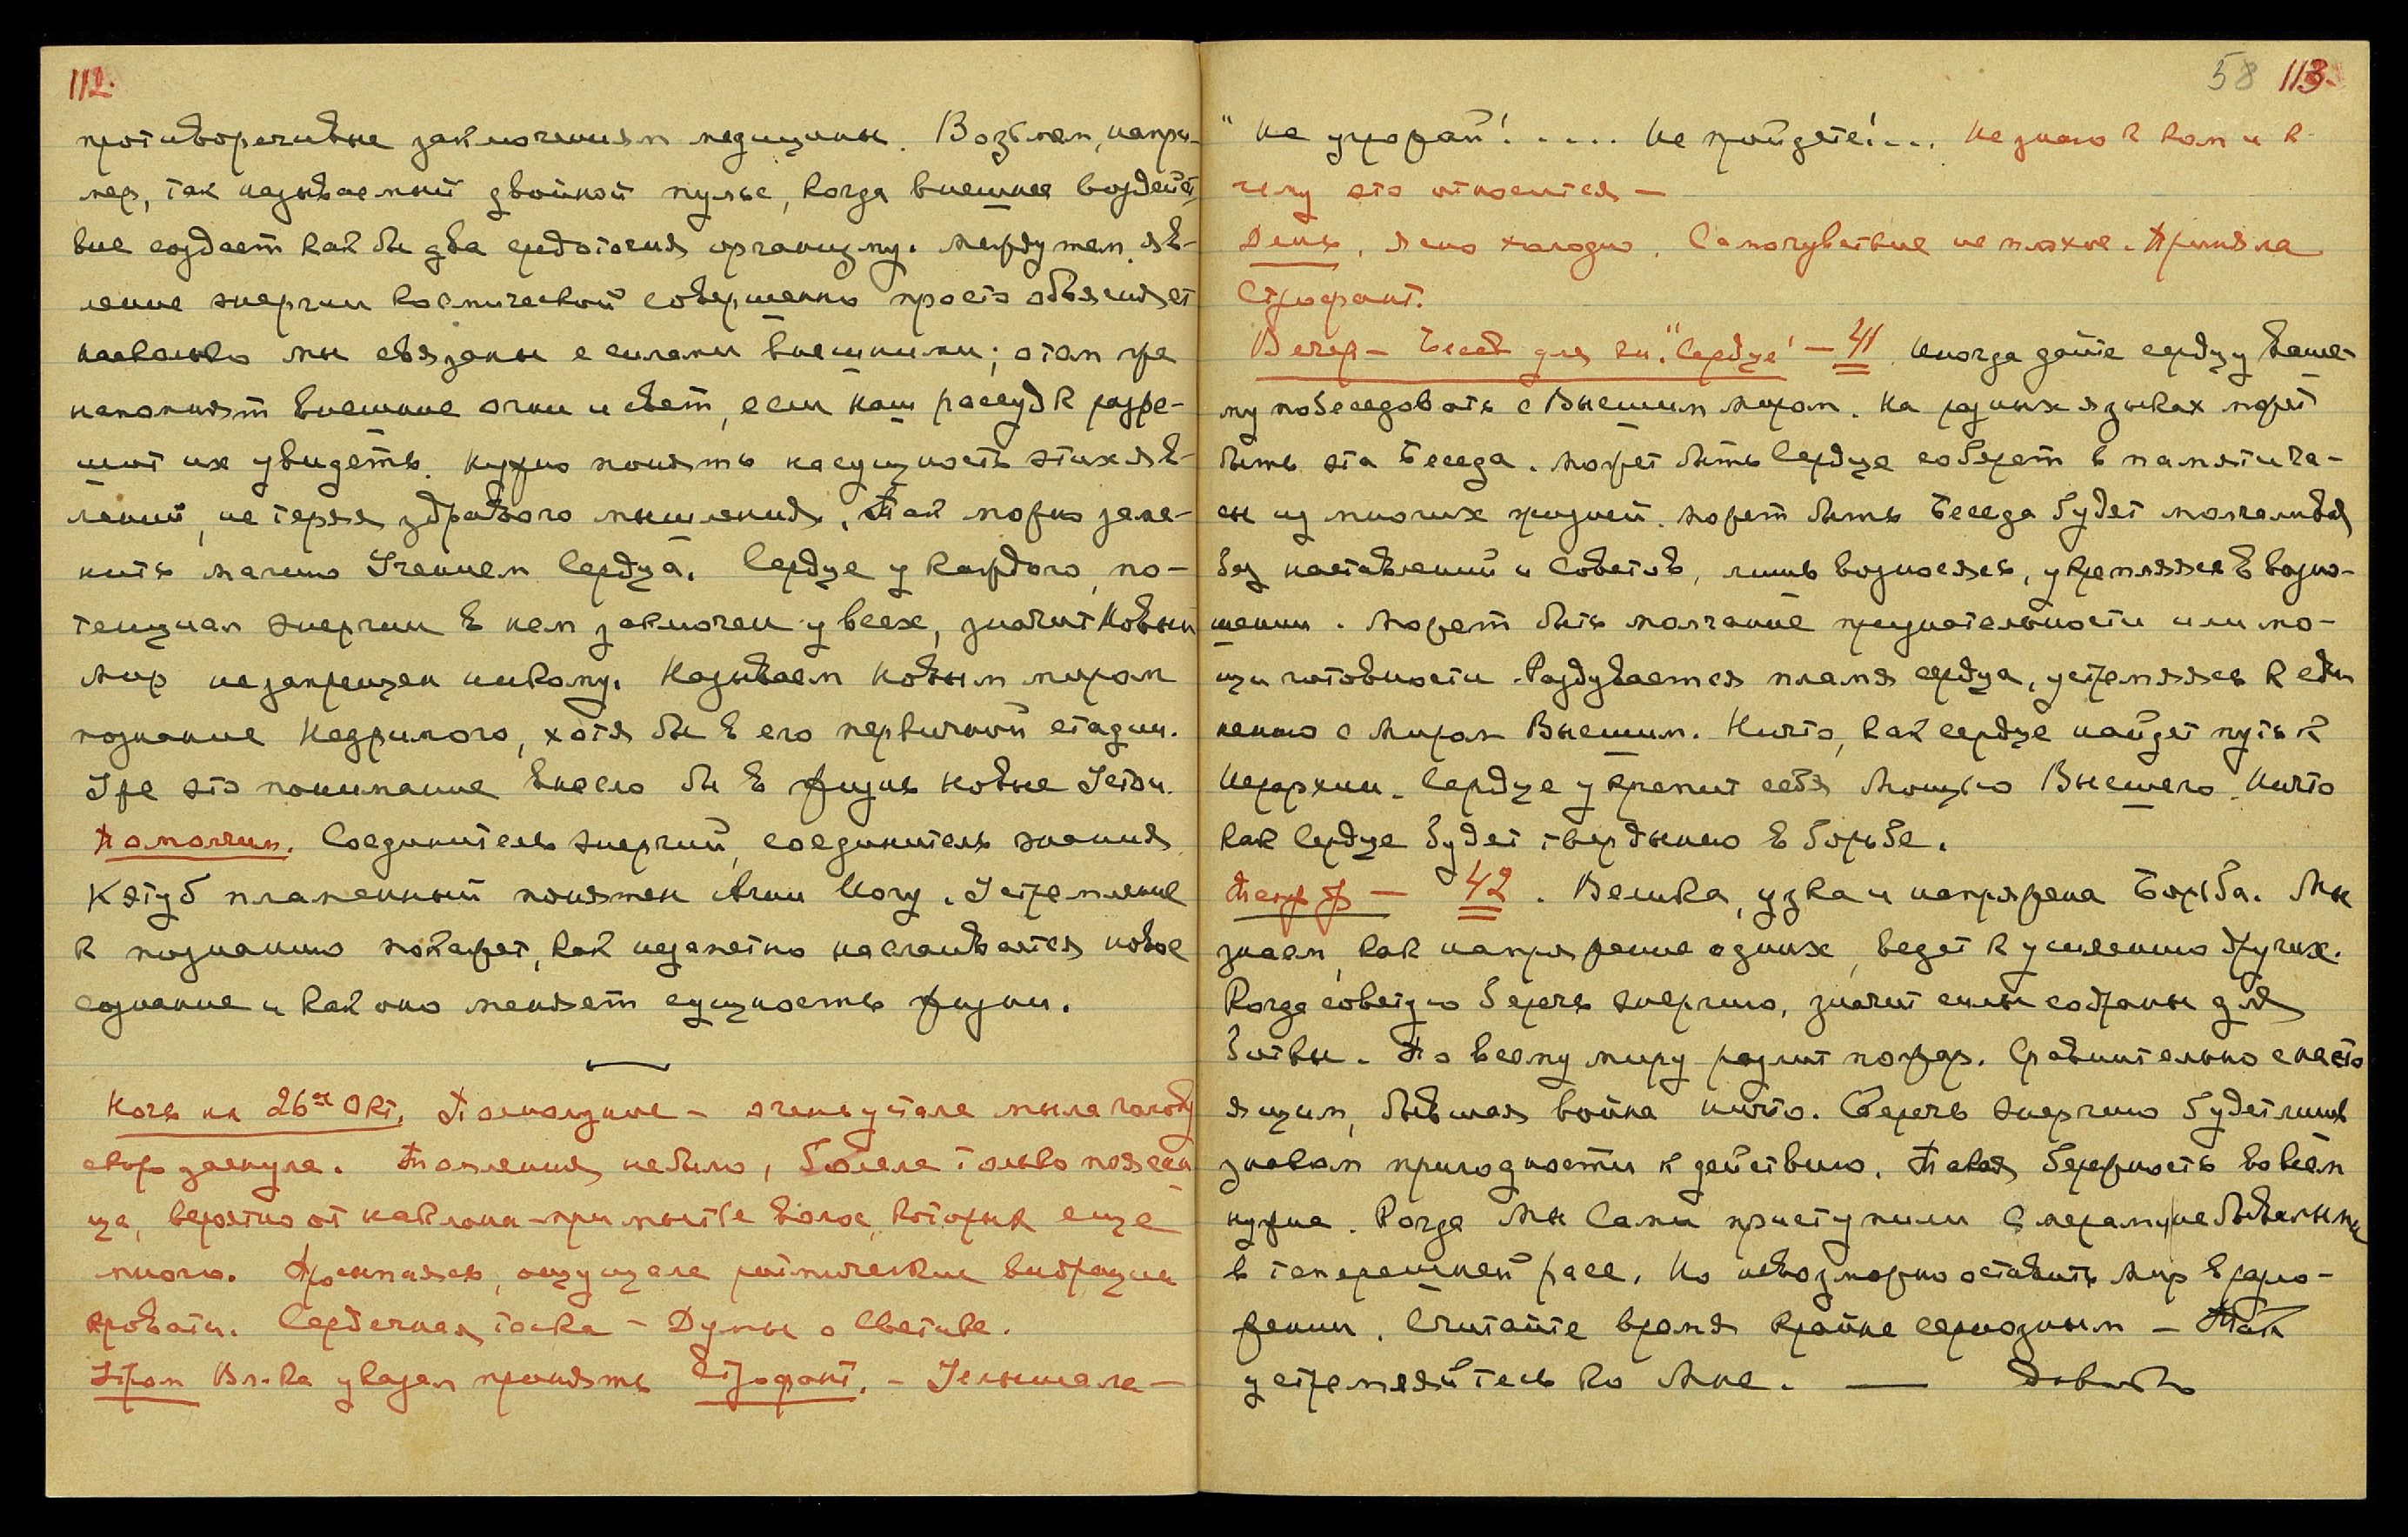 112.
противоречивые заключениям медицины. Возьмем, напри-
мер, так называемый двойной пульс, когда внешнее воздейст-
вие создает как бы два средоточия организму. Между тем яв-
ление энергии космической совершенно просто объясняет
насколько мы связаны с силами внешними; о том же
напомнят внешние огни и свет, если наш рассудок разре-
шит их увидеть. Нужно понять насущность этих яв-
лений, не теряя здравого мышления. Так можно заме-
нить магию Учением Сердца. Сердце у каждого, по-
тенциал энергии в нем заключен у всех, значит Новый
Мир не запрещен никому. Называем Новым миром
познание Незримого, хотя бы в его первичной стадии.
Уже это понимание внесло бы в жизнь новые Устои.
Помолчим. Соединитель энергий, соединитель знания
Кэтуб пламенный понятен Агни Йогу. Устремление
к познанию покажет, как незаметно наслаивается новое
сознание и как оно меняет сущность жизни.
Ночь на 26ое Окт. Полнолуние – очень устала мыла голову
скоро заснула. Томления не было, болела только поясни
ца, вероятно от наклона при мытье волос, которых еще
много. Просыпаясь, ощущала ритмические вибрации
кровати. Сердечная тоска – Думы о Светике.
Утром Вл-ка указал принять Строфант. – Услышала –
58 113.
"Не угрожай! ..... Не пройдете!... Не знаю к кому и к
чему это относится –
День, ясно холодно. Самочувствие не плохое. Приняла
Строфант.
Вечер – Бесед. для кн. "Сердце" – 41 Иногда дайте сердцу Ваше-
му побеседовать с Высшим Миром. На разных языках может
быть эта Беседа. Может быть Сердце соберет в памяти ча-
сы из многих жизней. Может быть Беседа будет молчалива
без наставлений и Советов, лишь возносясь, укрепляясь в возно-
шении. Может быть молчание признательности или мо-
щи готовности. Раздувается пламя сердца, устремляясь к еди
нению с Миром Высшим. Ничто, как сердце найдет путь к
Иерархии. Сердце укрепит себя Мощью Высшего. Ничто
как Сердце будет твердынею в борьбе.
– 42. Велика, узка и напряжена Борьба. Мы
знаем, как напряжение одних, ведет к усилению других.
Когда советую беречь энергию, значит силы собраны для
битвы. По всему миру разлит пожар. Сравнительно с насто
ящим, бывшая война ничто. Беречь энергию будет лишь
знаком пригодности к действию. Такая бережность во всем
нужна. Когда Мы Сами приступили с мерами, небывалыми
в теперешней расе. Но невозможно оставить Мир в разло-
жении. Считайте время крайне серьозным – Так
устремляйтесь ко Мне. — Довольно